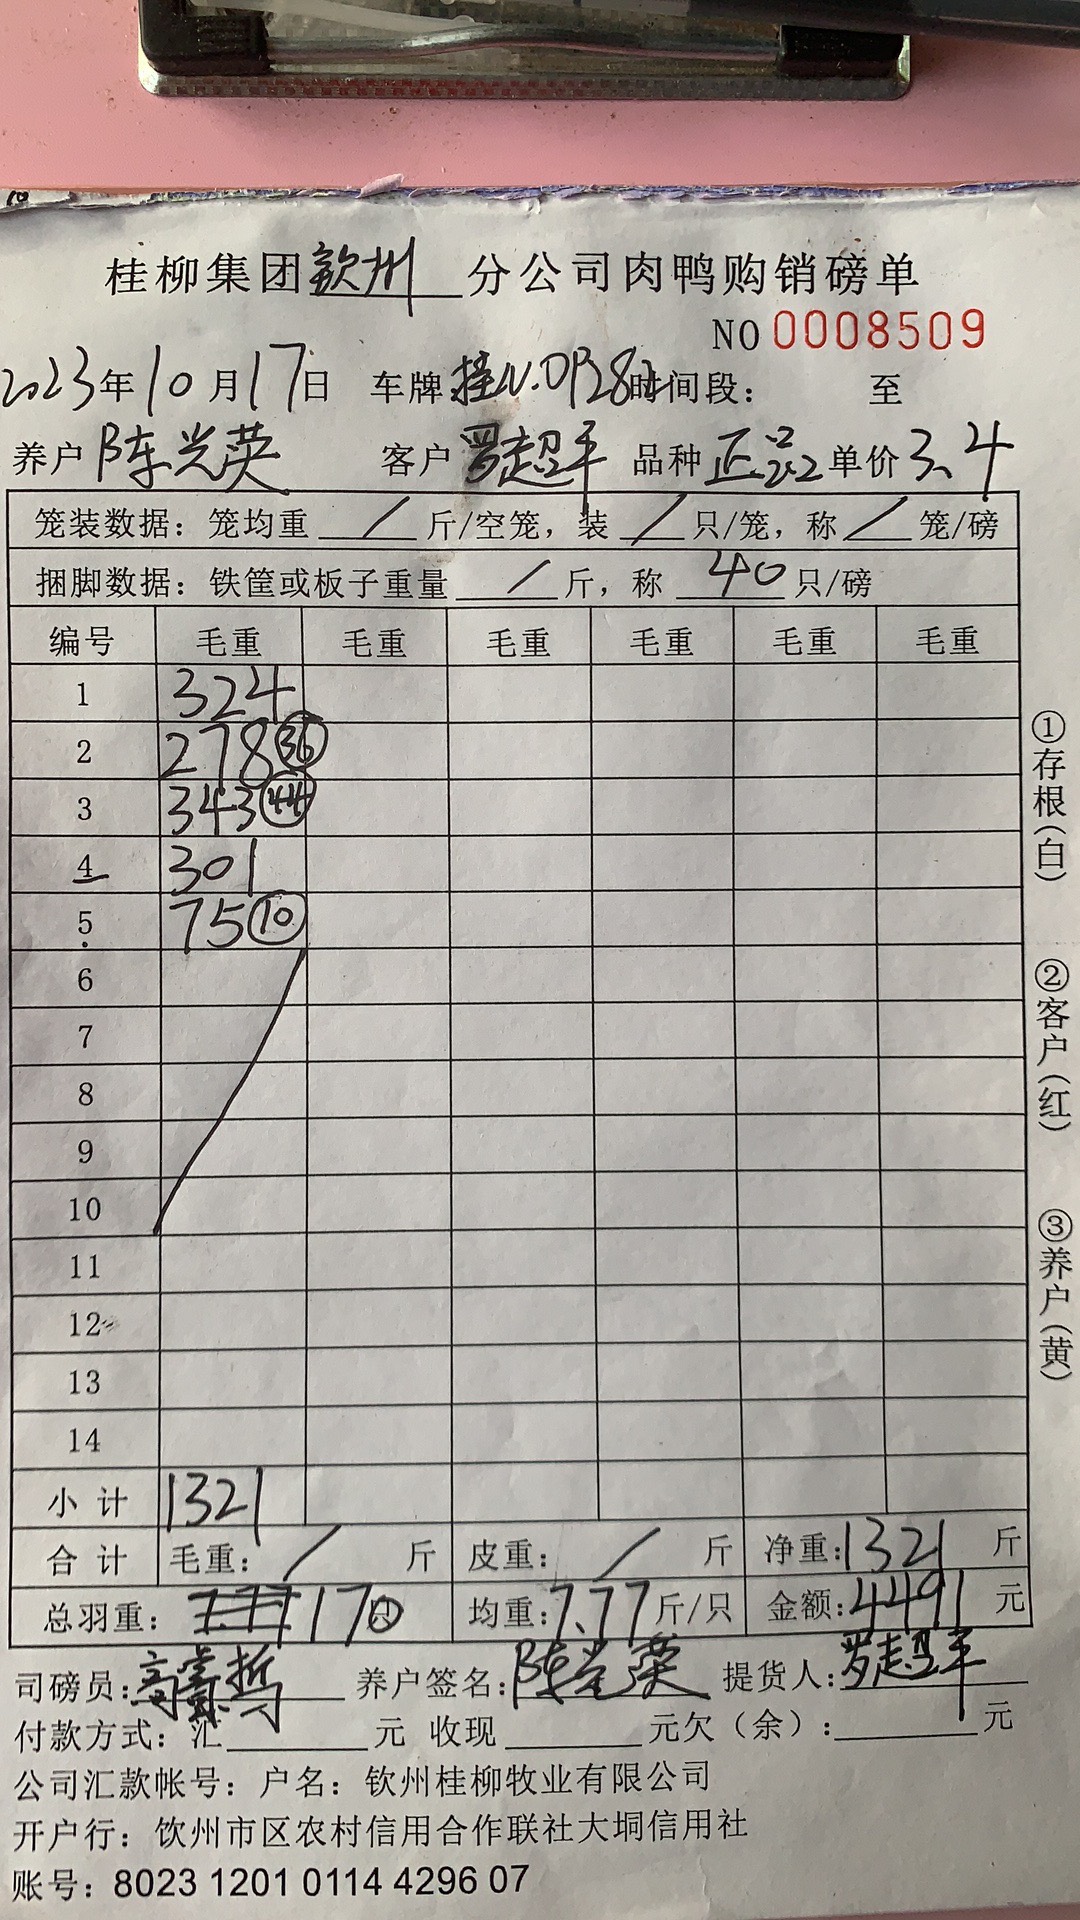 桂柳集团钦州分公司肉鸭购销磅单
NO 0008509
2023年10月17日 车牌 时间段： 至
养户 陈光英 客户 罗超平 品种 正品 单价 3.4
笼装数据：笼均重 / 斤/空笼，装 / 只/笼，称 / 笼/磅
捆脚数据：铁筐或板子重量 / 斤，称 40 只/磅
编号 毛重 毛重 毛重 毛重 毛重 毛重
1 324
2 278 36
3 343 44
4 301
5 75 10
6
7
8
9
10
11
12
13
14
小计 1321
合计 毛重： / 斤 皮重： / 斤 净重：1321 斤
总羽重： 170 只 均重：7.77 斤/只 金额：4491 元
司磅员： 养户签名：陈光英 提货人：罗超平
付款方式：汇 元 收现 元欠（余）： 元
公司汇款帐号：户名：钦州桂柳牧业有限公司
开户行：钦州市区农村信用合作联社大垌信用社
账号：8023 1201 0114 4296 07
①存根（白）
②客户（红）
③养户（黄）